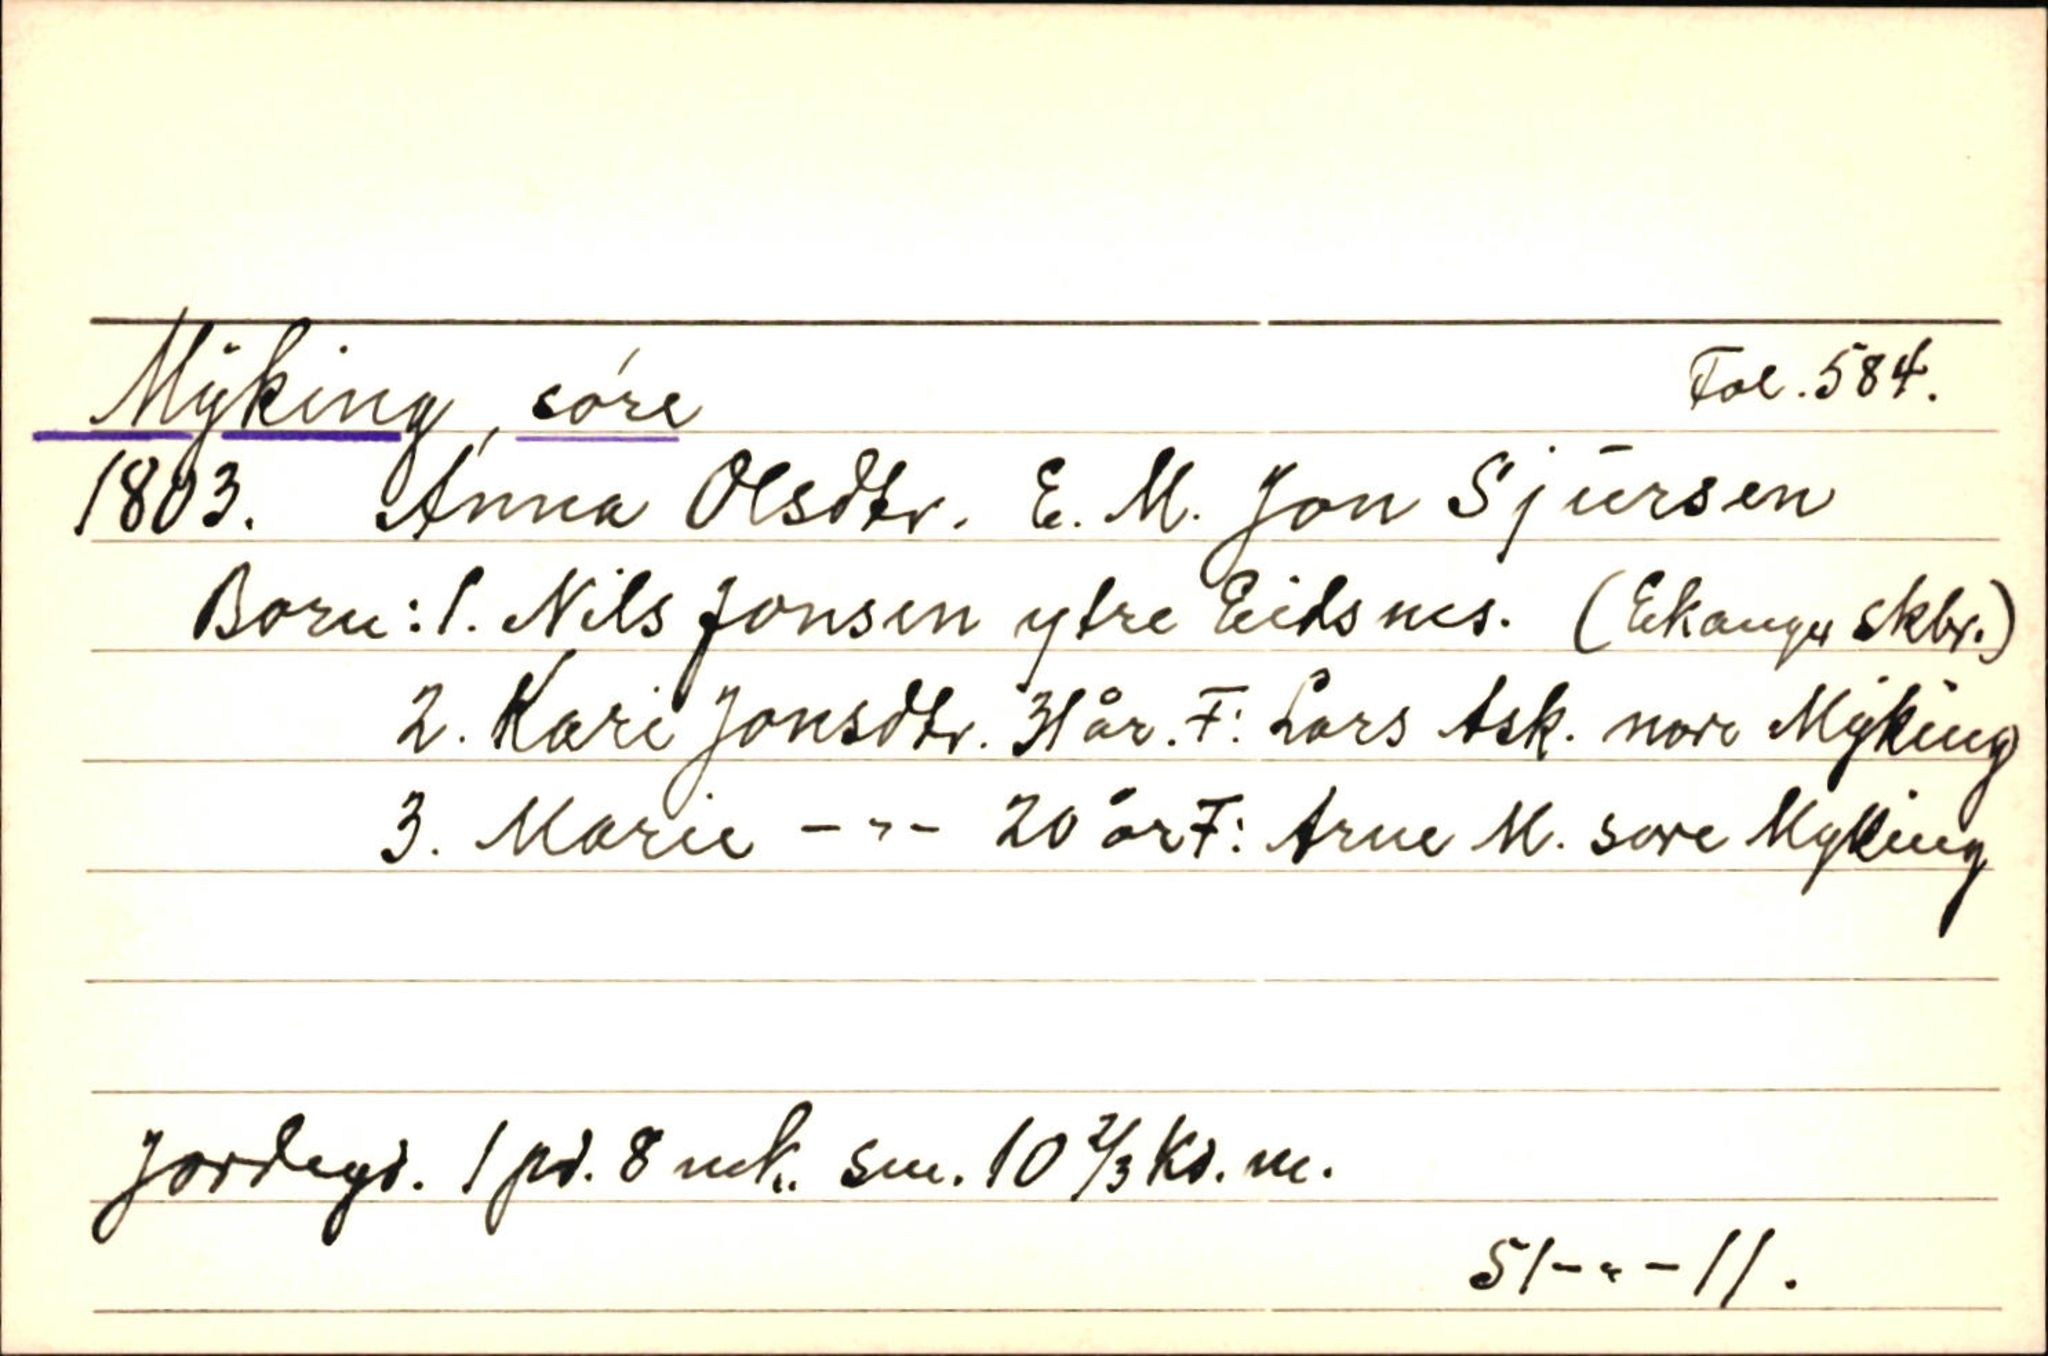 Myking, søre Fol. 584.
1803. Anna Olsdtr. E. M. Jon Sjursen
Born: 1. Nils Jonsen ytre Eidsnes. (Ekanger skbr.)
2. Kari Jonsdtr. 31 år. F: Lars Ask. nore Myking
3. Marie -"- 20 år F: Arne M. søre Myking
Jordegd. 1 pd. 8 mk. sm. 10 2/3 Kd. m.
51-"-11.